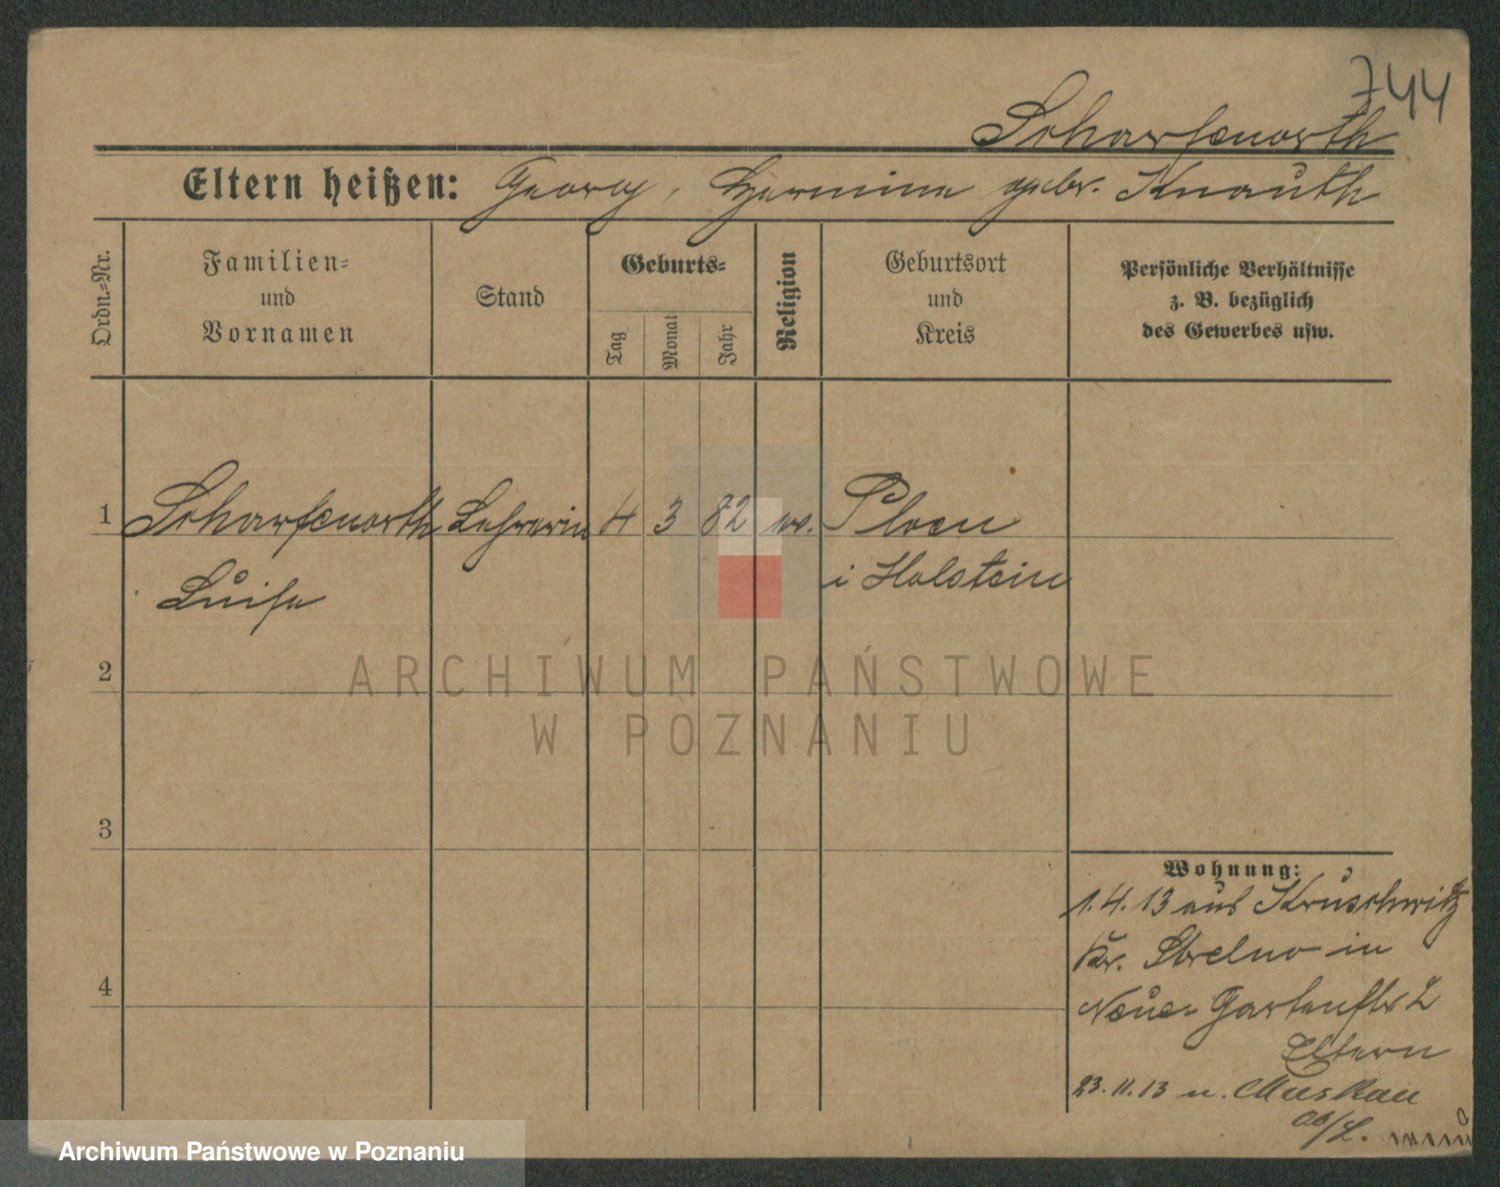 744
Scharfenorth
Eltern heißen: Georg, Hermine geb. Knauth
Ordn.-Nr.
Familien-
und
Vornamen
Stand
Geburts-
Tag
Monat
Jahr
Religion
Geburtsort
und
Kreis
Persönliche Verhältnisse
z. B. bezüglich
des Gewerbes usw.
1 Scharfenorth Lehrerin 4 3 82 ev. Ploen
Luise
i Holstein
2
3
4
Wohnung:
1.4.13 aus Kruschwitz
Kr. Strelno in
Neue Gartenstr 2
Eltern
23.11.13 n. Muskau
ab/L.
ARCHIWUM PAŃSTWOWE
W POZNANIU
Archiwum Państwowe w Poznaniu